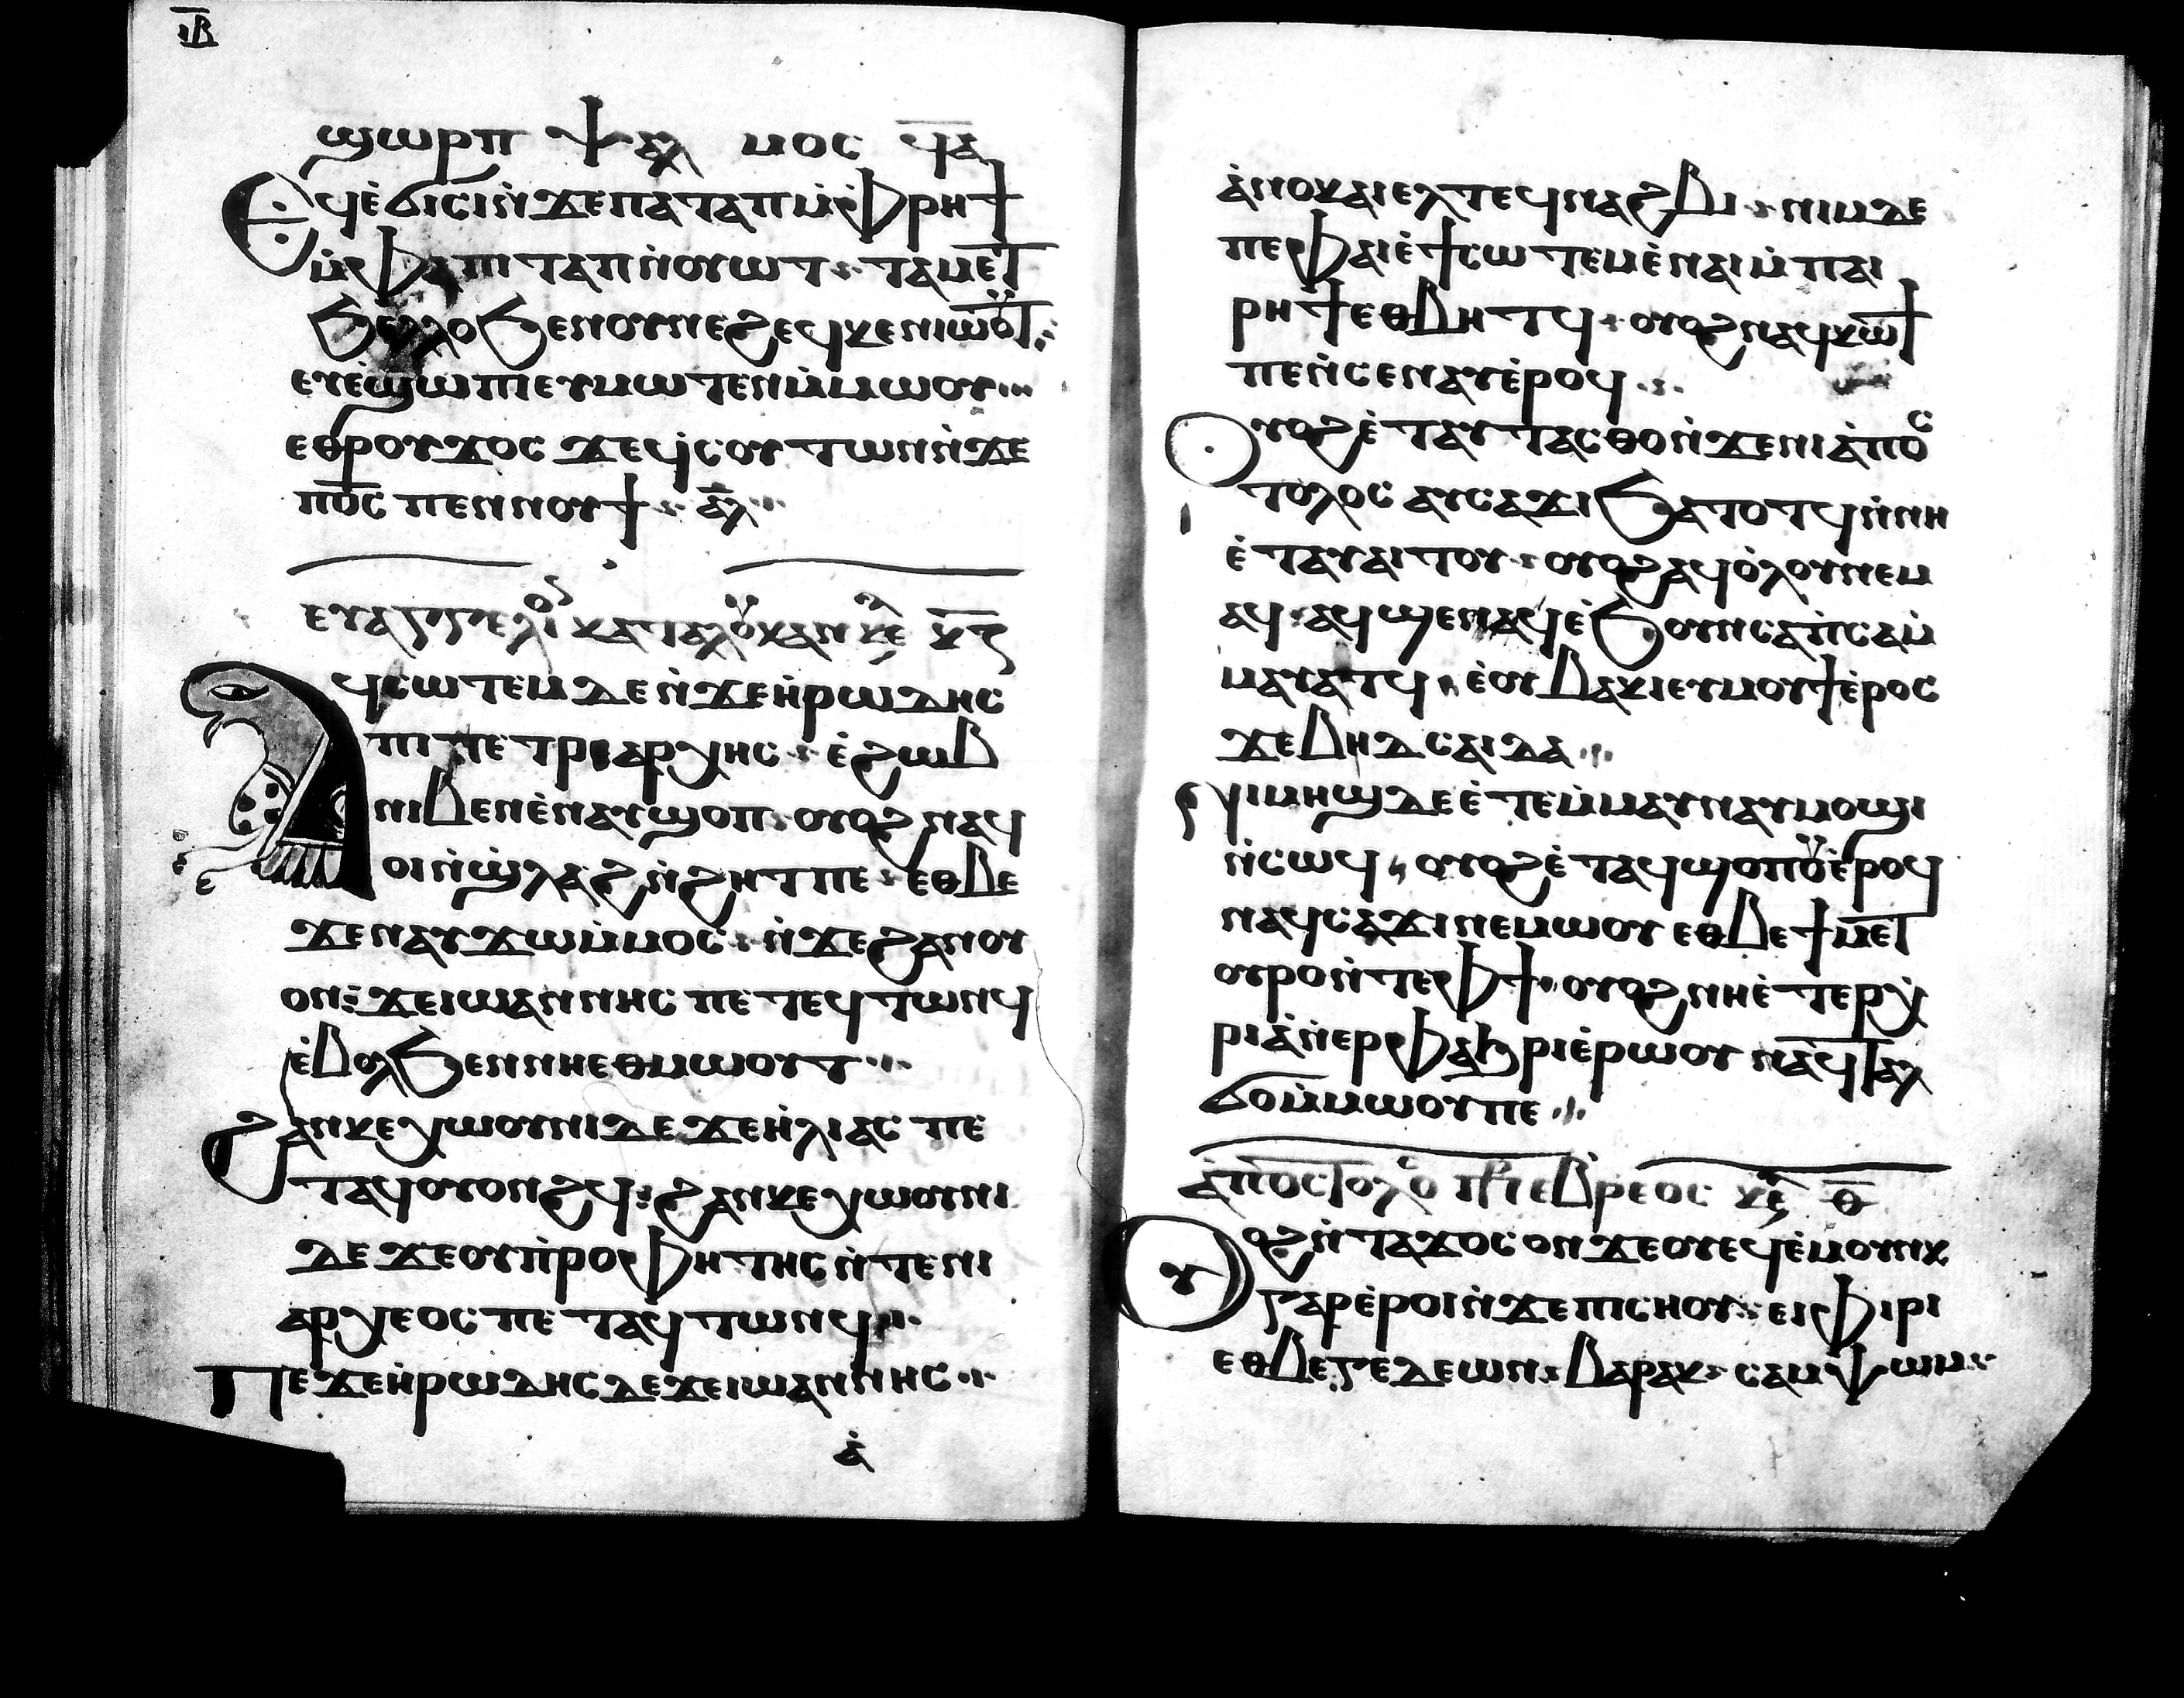 ⲓ̅ⲃ̅
ϣⲱⲣⲡ ⲯⲁⲗ ⲙⲟⲥ ϥ̅ⲁ̅
Ⲉϥⲉ̀ϭⲓⲥⲓⲛ̀ϫⲉⲡⲁⲧⲁⲡⲙ̀ⲫⲣⲏϯ
ⲙ̀ⲫⲁⲡⲓⲧⲁⲡⲛ̀ⲟⲩⲱⲧ ⲧⲁⲙⲉⲧ
ϧⲉⲗⲗⲟϧⲉⲛⲟⲩⲛⲉϩⲉϥⲕⲉⲛⲓⲱⲟⲩⲧ
ⲉⲩⲉ̀ϣⲱⲡⲓⲉⲩⲙⲱⲧⲉⲛⲙ̀ⲙⲱⲟⲩ
ⲉⲑⲣⲟⲩϫⲟⲥ ϫⲉϥ̀ⲥⲟⲩⲧⲱⲛⲛ̀ϫⲉ
ⲡⲟ̅ⲥ̅ ⲡⲉⲛⲛⲟⲩϯ ⲁ̅ⲗ̅
ⲉⲩⲁⲅⲅⲉⲗⲓⲟⲛ ⲕⲁⲧⲁⲗⲟⲩⲕⲁⲛ ⲕⲉ ⲕ̅ⲅ̅
Ⲁϥⲥⲱⲧⲉⲙⲇⲉⲛ̀ϫⲉⲏ̀ⲣⲱⲇⲏⲥ
ⲡⲓⲡⲉⲧⲣⲓⲁⲣⲭⲏⲥ ⲉ̀ϩⲱⲃ
ⲛⲓⲃⲉⲛⲉ̀ⲛⲁⲩϣⲟⲡ ⲟⲩⲟϩ ⲛⲁϥ
ⲟⲓⲛ̀ϣ̀ⲗⲁϩⲛ̀ϩⲏⲧⲡⲉ ⲉⲑⲃⲉ
ϫⲉⲛⲁⲩϫⲱⲙ̀ⲙⲟⲥ ⲛ̀ϫⲉϩⲁⲛⲟⲩ
ⲟⲛ ϫⲉⲓⲱⲁⲛⲛⲏⲥ ⲡⲉⲧⲉϥⲧⲱⲛϥ
ⲉ̀ⲃⲟⲗϧⲉⲛⲛⲏⲉⲑⲙⲱⲟⲩⲧ
ϩⲁⲛⲕⲉⲭⲱⲟⲩⲛⲓⲇⲉ ϫⲉⲏ̀ⲗⲓⲁⲥ ⲡⲉ
ⲧⲁϥⲟⲩⲟⲛϩϥ ϩⲁⲛⲕⲉⲭⲱⲟⲩⲛⲓ
ⲇⲉ ϫⲉⲟⲩⲡ̀ⲣⲟⲫⲏⲧⲏⲥ ⲛ̀ⲧⲉⲛⲓ
ⲁⲣⲭⲉⲟⲥ ⲡⲉ ⲧⲁϥⲧⲱⲛϥ
Ⲡⲉϫⲉⲏ̀ⲣⲱⲇⲏⲥ ⲇⲉϫⲉⲓⲱⲁⲛⲛⲏⲥ
ⲁ̀
ⲁ̀ⲛⲟⲕⲁⲓⲉⲗⲧⲉϥⲛⲁϩⲃⲓ ⲛⲓⲙⲇⲉ
ⲡⲉⲫⲁⲓⲉ̀ϯⲥⲱⲧⲉⲙⲉ̀ⲛⲁⲓⲙ̀ⲡⲁⲓ
ⲣⲏϯⲉⲑⲃⲏⲧϥ ⲟⲩⲟϩ ⲛⲁϥⲕⲱϯ
ⲡⲉⲛ̀ⲥⲉⲛⲁⲩⲉ̀ⲣⲟϥ
Ⲟⲩⲟϩⲉ̀ⲧⲁⲩⲧⲁⲥⲑⲟⲛ̀ϫⲉⲛⲓⲁ̀ⲡⲟⲥ
ⲧⲟⲗⲟⲥ ⲁⲩⲥⲁϫⲓϧⲁⲧⲟⲧϥⲛ̀ⲛⲏ
ⲉ̀ⲧⲁⲩⲁⲓⲧⲟⲩ ⲟⲩⲟϩⲁϥⲟ̀ⲗⲟⲩⲛⲉⲙ
ⲁϥ ⲁϥϣⲉⲛⲁϥⲉ̀ϧⲟⲩⲛⲥⲁⲡ̀ⲥⲁⲙ̀
ⲙⲁⲩⲁⲧϥ ⲉ̀ⲟⲩⲃⲁⲕⲓⲉⲩⲙⲟⲩϯⲉ̀ⲣⲟⲥ
ϫⲉⲃⲏⲇⲥⲁⲓⲇⲁ
ⲛⲓⲙⲏϣⲇⲉⲉ̀ⲧⲉⲙ̀ⲙⲁⲩⲛⲁⲩⲙⲟϣⲓ
ⲛ̀ⲥⲱϥ ⲟⲩⲟϩⲉ̀ⲧⲁϥϣⲟⲡⲟⲩⲉ̀ⲣⲟϥ
ⲛⲁϥⲥⲁϫⲓⲛⲉⲙⲱⲟⲩ ⲉⲑⲃⲉϯⲙⲉⲧ
ⲟⲩⲣⲟⲛ̀ⲧⲉⲫϯ ⲟⲩⲟϩⲛⲏⲉ̀ⲧⲉⲣⲭ̀
ⲣⲓⲁ̀ⲛ̀ⲉⲣⲫⲁϧⲣⲓⲉ̀ⲣⲱⲟⲩ ⲛⲁϥⲧⲁⲗ
ϭⲟⲙ̀ⲙⲱⲟⲩⲡⲉ
ⲁ̀ⲡⲟⲥⲧⲟⲗⲟ ⲡⲣ ⲉⲃⲣⲉⲟⲥ ⲕⲉ ⲑ̅
Ⲟⲩⲟϩⲛ̀ⲧⲁϫⲟⲥ ⲟⲛ ϫⲉⲟⲩⲉϥⲉ̀ⲙⲟⲩⲛⲕ
ⲅⲁⲣⲉ̀ⲣⲟⲓⲛ̀ϫⲉⲡⲓⲥⲏⲟⲩ ⲉⲓⲫⲓⲣⲓ
ⲉⲑⲃⲉⲅⲉⲇⲉⲱⲛ ⲃⲁⲣⲁⲕ ⲥⲁⲙⲯⲱⲙ